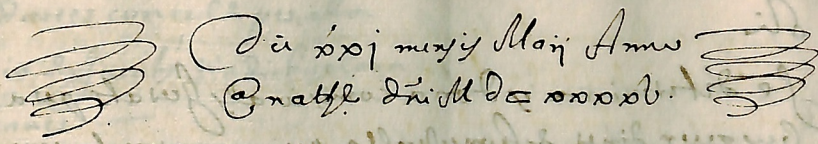 Die xxj mensis Maij Anno
a natte dñi M Dc xxxxv.